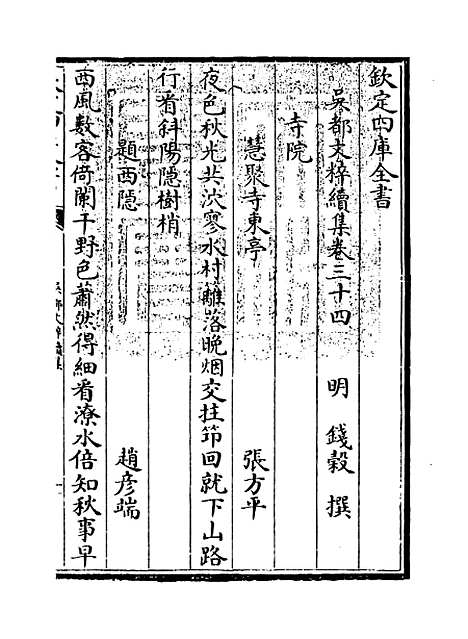 欽定四庫全書
吳都文粹續集卷三十四
明 錢榖 撰
寺院
慧聚寺東亭 張方平
夜色秋光共泬寥水村籬落晚烟交拄笻回就下山路
行看斜陽隱樹梢
題西隱 趙彦端
西風數客倚闌干野色蕭然得細看潦水倍知秋事早